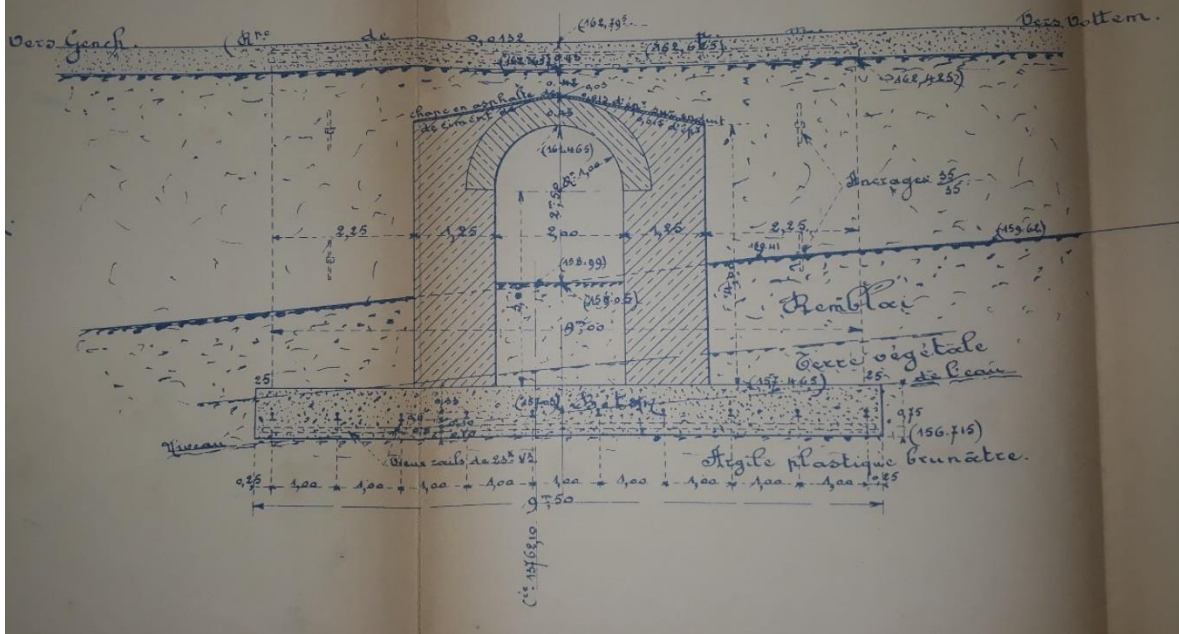 Vers Gench.
(Rne de 0,0132 p. m.
(162,795
Vers Vottem.
(162,625)
(162,425)
0,03
chape en asphalte de 0,012 d'épr sur enduit
de ciment de 0,015 d'épr
(161.465)
Rn 1,00
2m,50
Ancrages 35/35.
2,25 1,25 2,00 1,25 2,25
159.41
(159.62)
(158.99)
(159.05)
4,00
Remblai
8m,00
Terre végétale
25
(157.465)
25
de l'eau
Béton
0,75
(156.715)
Niveau
Vieux rails de 23k
Argile plastique brunâtre.
0,25 1,00 1,00 1,00 1,00 1,00 1,00 1,00 1,00 0,25
9m,50
(ie 13762,10